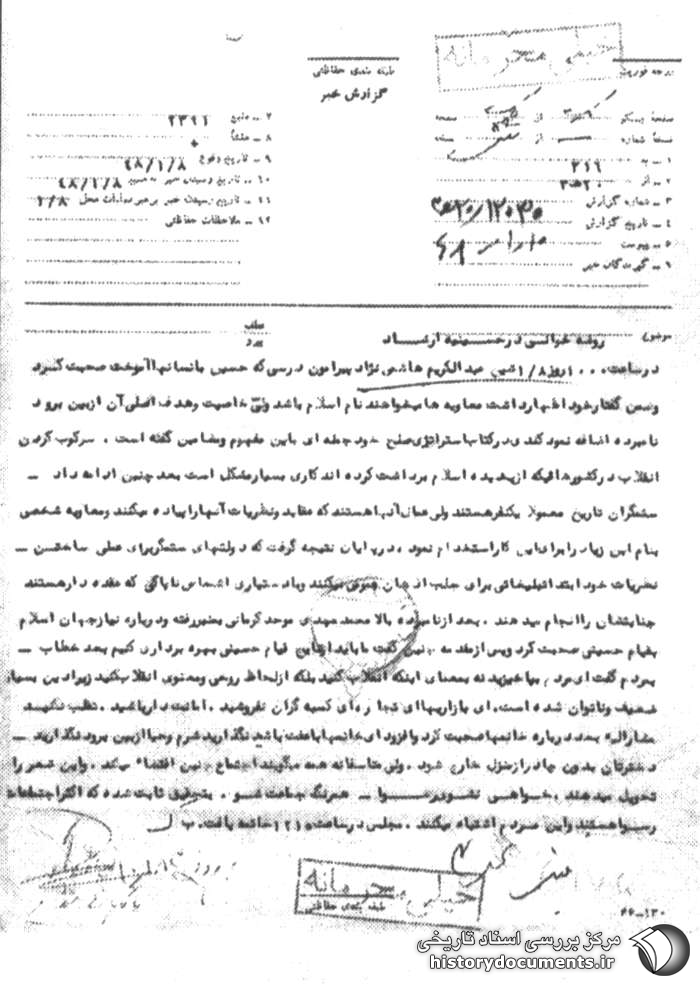 خیلی محرمانه
درجه فوریت
طبقه بندی حفاظتی
گزارش خبر
صفحهٔ یکم از صفحه
نسخهٔ شماره از نسخه
۱ ــ به ۳۱۶
۲ ــ از ۲۰ه۳
۳ ــ شماره گزارش ۲۰ه۳/۱۲۰۳۵
۴ ــ تاریخ گزارش
۵ ــ پیوست
۶ ــ گیرندگان خبر
۷ ــ منبع ۲۳۹۱
۸ ــ منشأ
۹ ــ تاریخ وقوع ۴۸/۱/۸
۱۰ ــ تاریخ رسیدن خبر به منبع ۴۸/۱/۸
۱۱ ــ تاریخ رسیدن خبر برهبر عملیات محل ۱/۸
۱۲ ــ ملاحظات حفاظتی
موضوع : روضه خوانی در حسینیه ارشاد
عطف
پیرو
در ساعت ۱۰۰۰ روز ۱/۸ شیخ عبدالکریم هاشمی نژاد پیرامون درسی که حسین بانسانها آموخت صحبت کرد
وضمن گفتار خود اظهار داشت معاویه ها میخواهند نام اسلام باشد ولی خاصیت وهدف اصلی آن ازبین برود
نامبرده اضافه نمود کندی در کتاب استراتژی صلح خود جمله ای باین مفهوم ومضامین گفته است . سرکوب کردن
انقلاب در کشورهائیکه از پدیده اسلام برداشت کرده اند کاری بسیار مشکل است بعد چنین ادامه داد ــ
ستمگران تاریخ معمولا یکنفر هستند ولی عمال آنها هستند که عقاید ونظریات آنها را پیاده میکنند ومعاویه شخصی
بنام ابن زیاد را برای این کار استخدام نمود . در پایان نتیجه گرفت که دولتهای ستمگر برای عملی ساختن ــ
نظریات خود ابتدا تبلیغاتی برای جلب اذهان عمومی میکنند وبادستیاری اشخاص ناپاکی که عقده دار هستند
جنایتشان را انجام میدهند . بعد از نامبرده بالا محمد مهدی موحد کرمانی بمنبر رفته ودرباره نیاز جهان اسلام
بقیام حسینی صحبت کرد وپس از مقدمه چنین گفت ما باید از این قیام حسینی بهره برداری کنیم بعد خطاب ــ
بمردم گفت ای مردم بپاخیزید نه بمعنای اینکه انقلاب کنید بلکه از لحاظ روحی ومعنوی انقلاب کنید زیرا دین بسیار
ضعیف وناتوان شده است . ای بازاریها ای تجار ای کسبه گران نفروشید . امانت دار باشید . تقلب نکنید
مشارالیه بعد درباره خانمها صحبت کرد وافزود ای خانمها باعفت باشید نگذارید شرم وحیا ازبین برود نگذارید ــ
دخترتان بدون چادر از منزل خارج شود . ولی متاسفانه همه میگویند اجتماع چنین اقتضاء میکند . واین شعر را
تحویل میدهند . خواهی نشوی رسوا ــ همرنگ جماعت شو . بتحقیق ثابت شده که اکثر اجتماعات
رسوا هستند واین مردم اشتباه میکنند . مجلس در ساعت ۱۲۰۰ خاتمه یافت . ب
خیلی محرمانه
طبقه بندی حفاظتی
۶۶ــ۱۳۰
مرکز بررسی اسناد تاریخی
historydocuments.ir